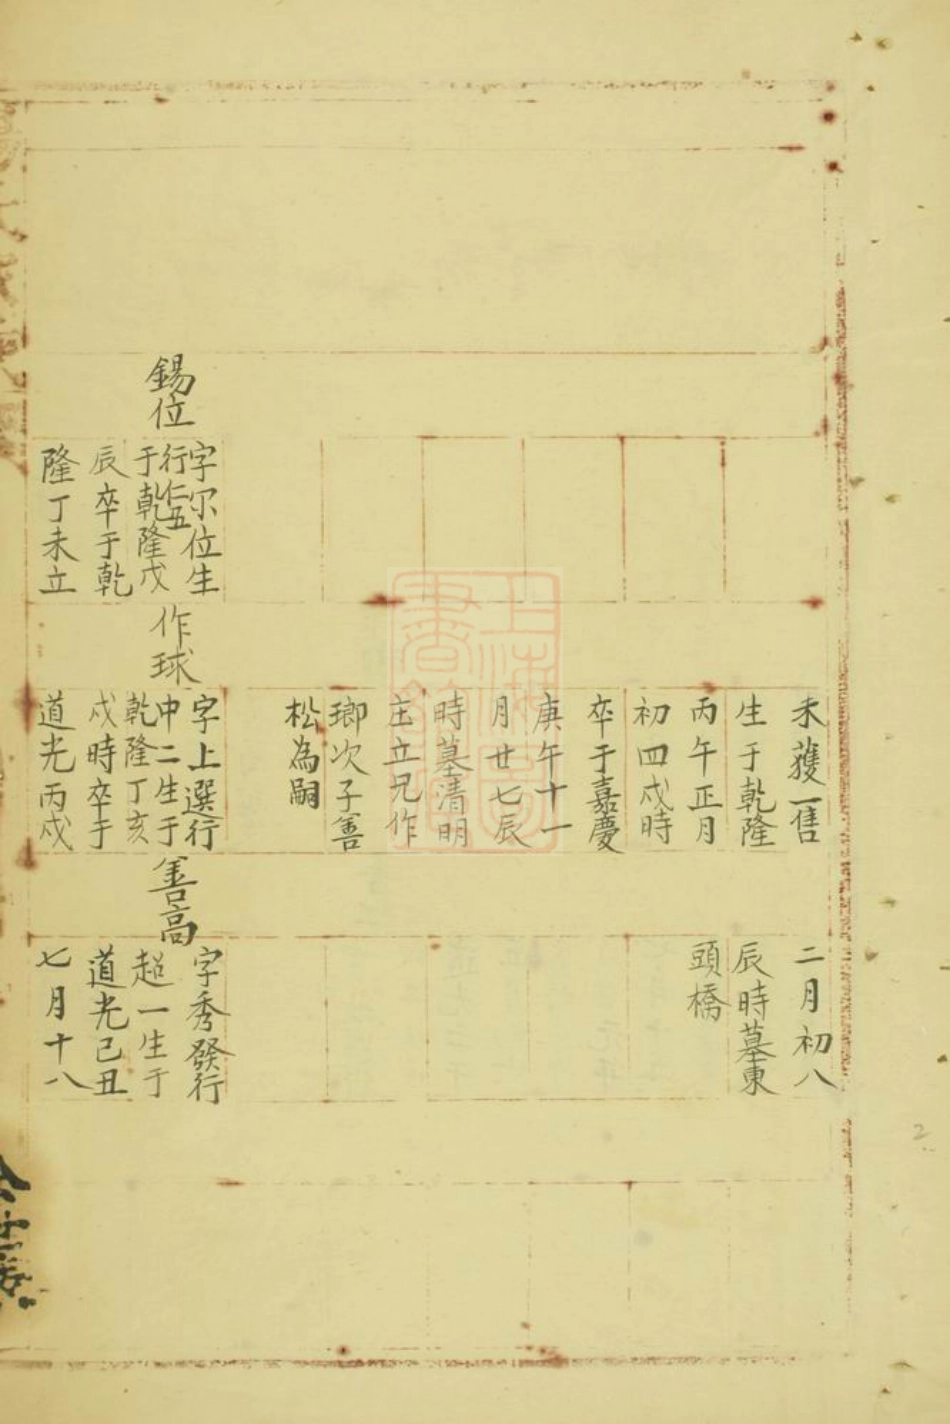 錫位
字尔位生
行仁五
于乾隆戊
辰卒于乾
隆丁未立
未獲一售
生于乾隆
丙午正月
初四戌時
卒于嘉慶
庚午十一
月廿七辰
時墓清明
庄立兄作
瑯次子善
松為嗣
作球
字上選行
中二生于
乾隆丁亥
戌時卒于
道光丙戌
二月初八
辰時墓東
頭橋
善高
字秀發行
超一生于
道光己丑
七月十八
2